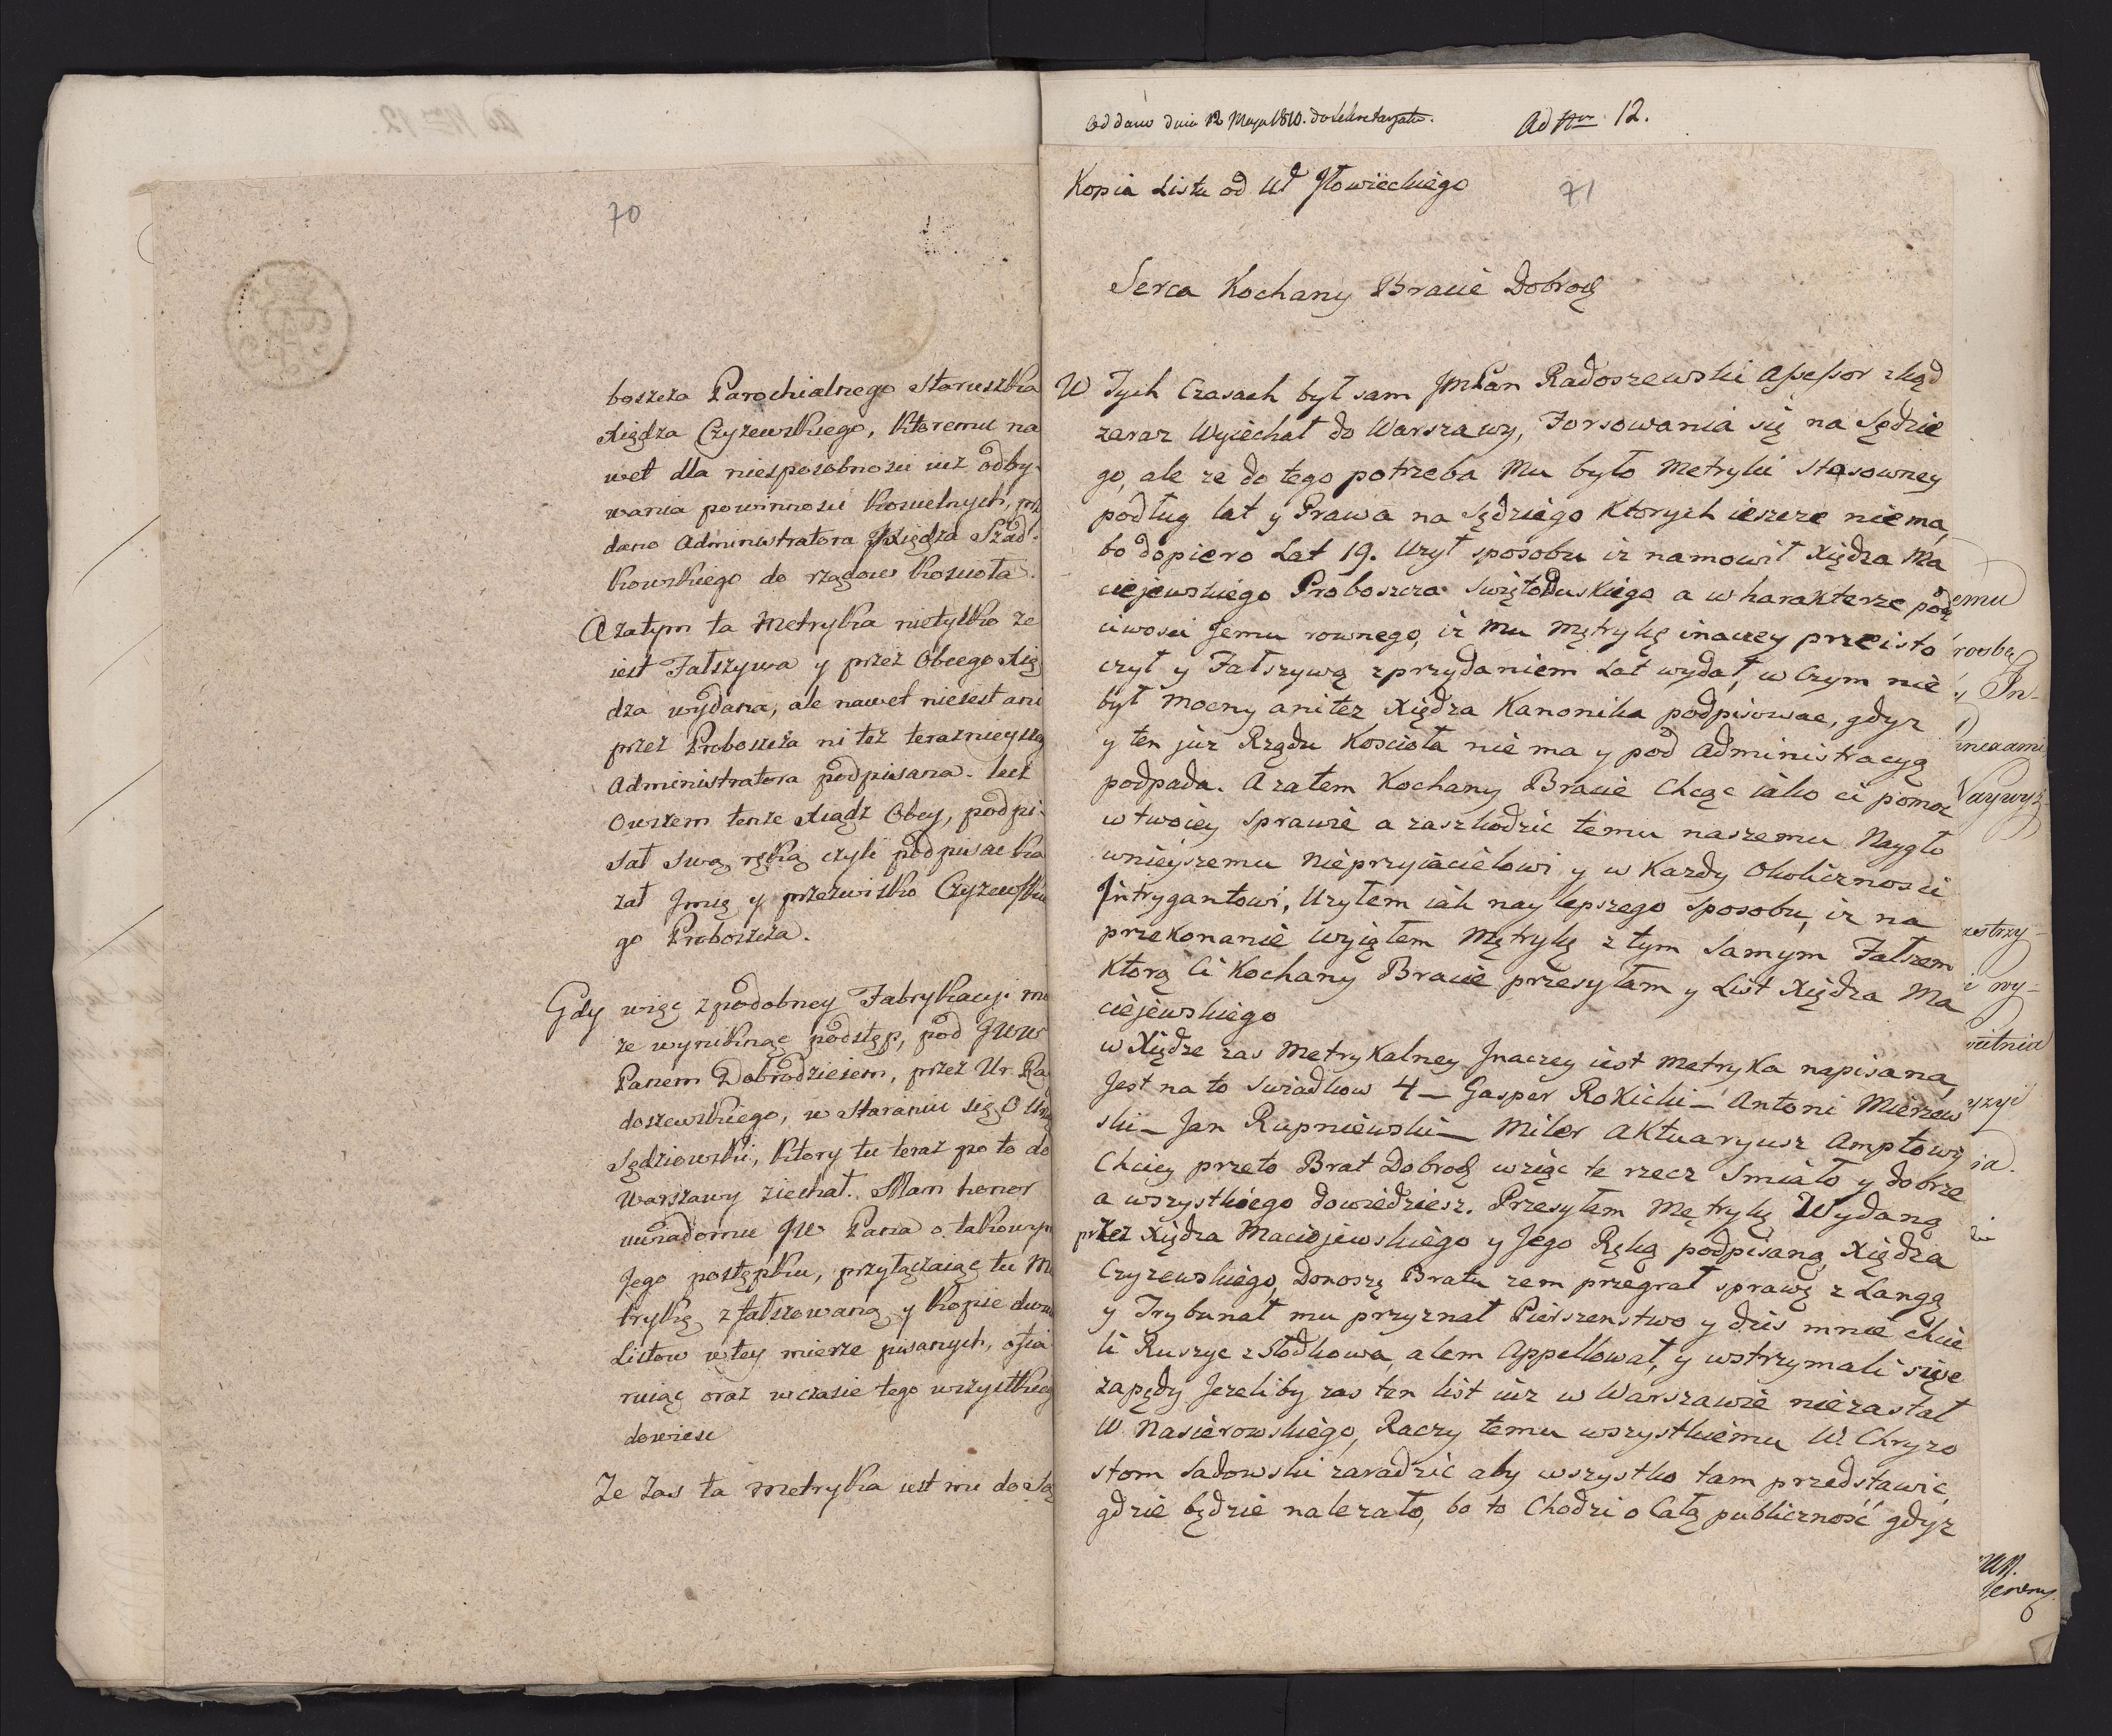 70
boszcza Parochialnego Staruszka
Xiędza Czyzewskiego, ktoremu na
wet dla niesposobnosci iuż odby-
wania powinnosci koscielnych, prz
dano Administratora Xiędza Szad-
kowskiego do rządow koscioła.
A zatym ta Metryka nietylko ze
iest Fałszywa y przez Obcego Xię
dza wydana, ale nawet nieiest ani
przez Proboszcza ni też teraznieyszeg
Administratora podpisana. lecz
Owszem tenze Xiądz Obcy, podpi-
sał swą ręką czyli podpisac ka
zał Jmię y przezwisko Czyzewskie
go Proboszcza.
Gdy więc z podobney Fabrykacyi mo
ze wyniknąc podstęp, pod JWW
Panem Dobrodzieiem, przez Ur. Ra
doszewskiego, w staraniu się o Urz
Sędziowski, ktory tu teraz po to do
Warszawy ziechał. Mam honor
uwiadomic JW Pana o takowym
Jego postępku, przyłączaiąc tu Me
trykę zfałszowaną y kopie dwuch
Listow w tey mierze pisanych, ofia
ruiąc oraz w czasie tego wszystkieg
dowiesc
Ze zas ta metryka iest mi do Są
Oddano dnia 12 Maja 1810. do Sekretaryatu.
Ad Nrm 12.
Kopia Listu od Uł Jłowieckiego
71
Serca Kochany Bracie Dobrodz
W Tych Czasach był sam JmPan Radoszewski Assessor zkąd
zaraz Wyiechał do Warszawy, Forsowania się na Sędzie
go, ale ze do tego potrzeba Mu było Metryki Stasowney
podług lat y Prawa na Sędziego Ktorych ieszcze niema,
bo dopiero Lat 19. Uzył sposobu iz namowił Xiędza Ma
ciejewskiego Proboszcza Swiętoduskiego a w harakterze pocz
ciwosci Jemu rownego, iz Mu Mętrykę inaczey przeisto
czył y Fałszywą z przydaniem Lat wydał, w Czym nie
był Mocny ani tez Xiędza Kanonika podpisowac, gdyz
y ten juz Rządu Koscioła nie ma y pod Administracyą
podpada. A zatem Kochany Bracie Chcąc iako ci pomoc
w twoiey Sprawie a zaszkodzic temu naszemu Naygło
wnieyszemu Nieprzyiacielowi y w Kazdy Okolicznosci
Jntrygantowi, Uzyłem iak naylepszego Sposobu, iz na
przekonanie Wyiąłem Mętrykę z tym Samym Fałszem
Ktorą Ci Kochany Bracie przesyłam y List Xiędza Ma
ciejewskiego
w Xiędze zas Metrykalney Jnaczey iest Metryka napisana,
Jest na to Swiadkow 4 – Gasper Rokicki – Antoni Mierzew
ski – Jan Rupniewski – Miler Aktuaryusz Amptowy
Chciey przeto Brat Dobrodz wziąc te rzecz Smiało y dobrze
a wszystkiego dowiedziesz. Przesyłam Mętrykę Wydaną
przez Xiędza Maciejewskiego y Jego Ręką podpisaną, Xiędza
Czyzewskiego, Donoszę Bratu zem przegrał sprawę z Langą
y Trybunał mu przyznał Pierszenstwo y dzis mnie chcie
li Ruszyc z Słodkowa, alem Appellował, y wstrzymali swe
zapędy Jezeliby zas ten list iuz w Warszawie niezastał
W Nasierowskiego, Raczy temu wszystkiemu W. Chryzo
stom Sadowski zaradzic aby wszystko tam przedstawic,
gdzie będzie nalezało, bo to Chodzi o Całą publiczność gdyz
emu
rosbę
Jn-
nexami
Naywyż-
i wy-
ia.